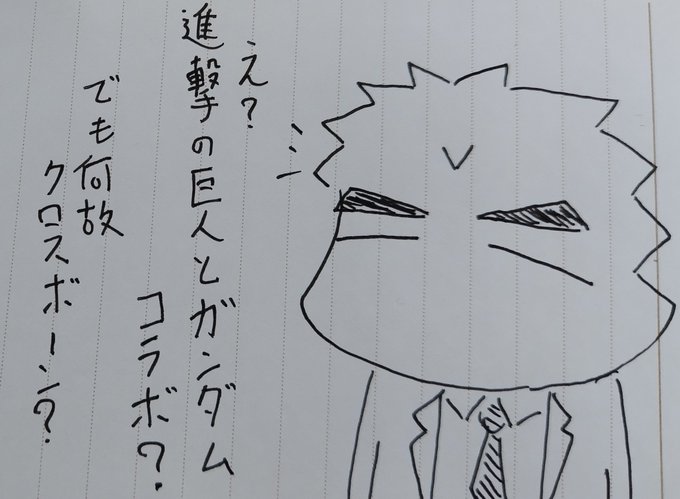 え?
進撃の巨人とガンダム
コラボ?
でも何故
クロスボーン?